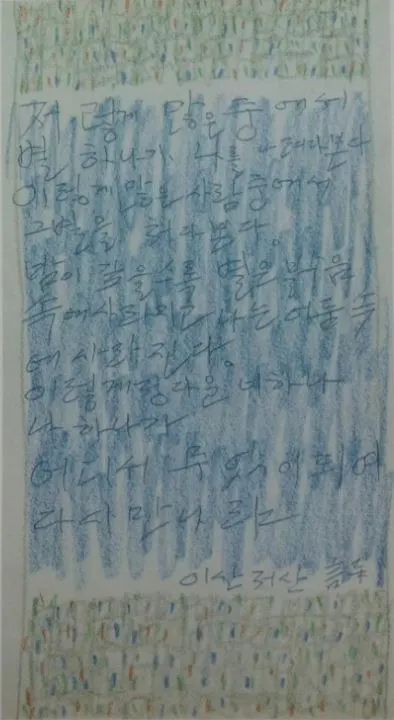 저 렇게 많은 중 에서
별 하나가 나를 나려다본다
이렇게 많은 사람중에서
그별을 쳐다본다.
밤이 깊을수록 별은 밝음
속에사라지고 나는 어둠 속
에 사라진다.
이렇게정다운 너하나
나 하나가
어디서 무엇이되여
다시만나랴
이산 저산